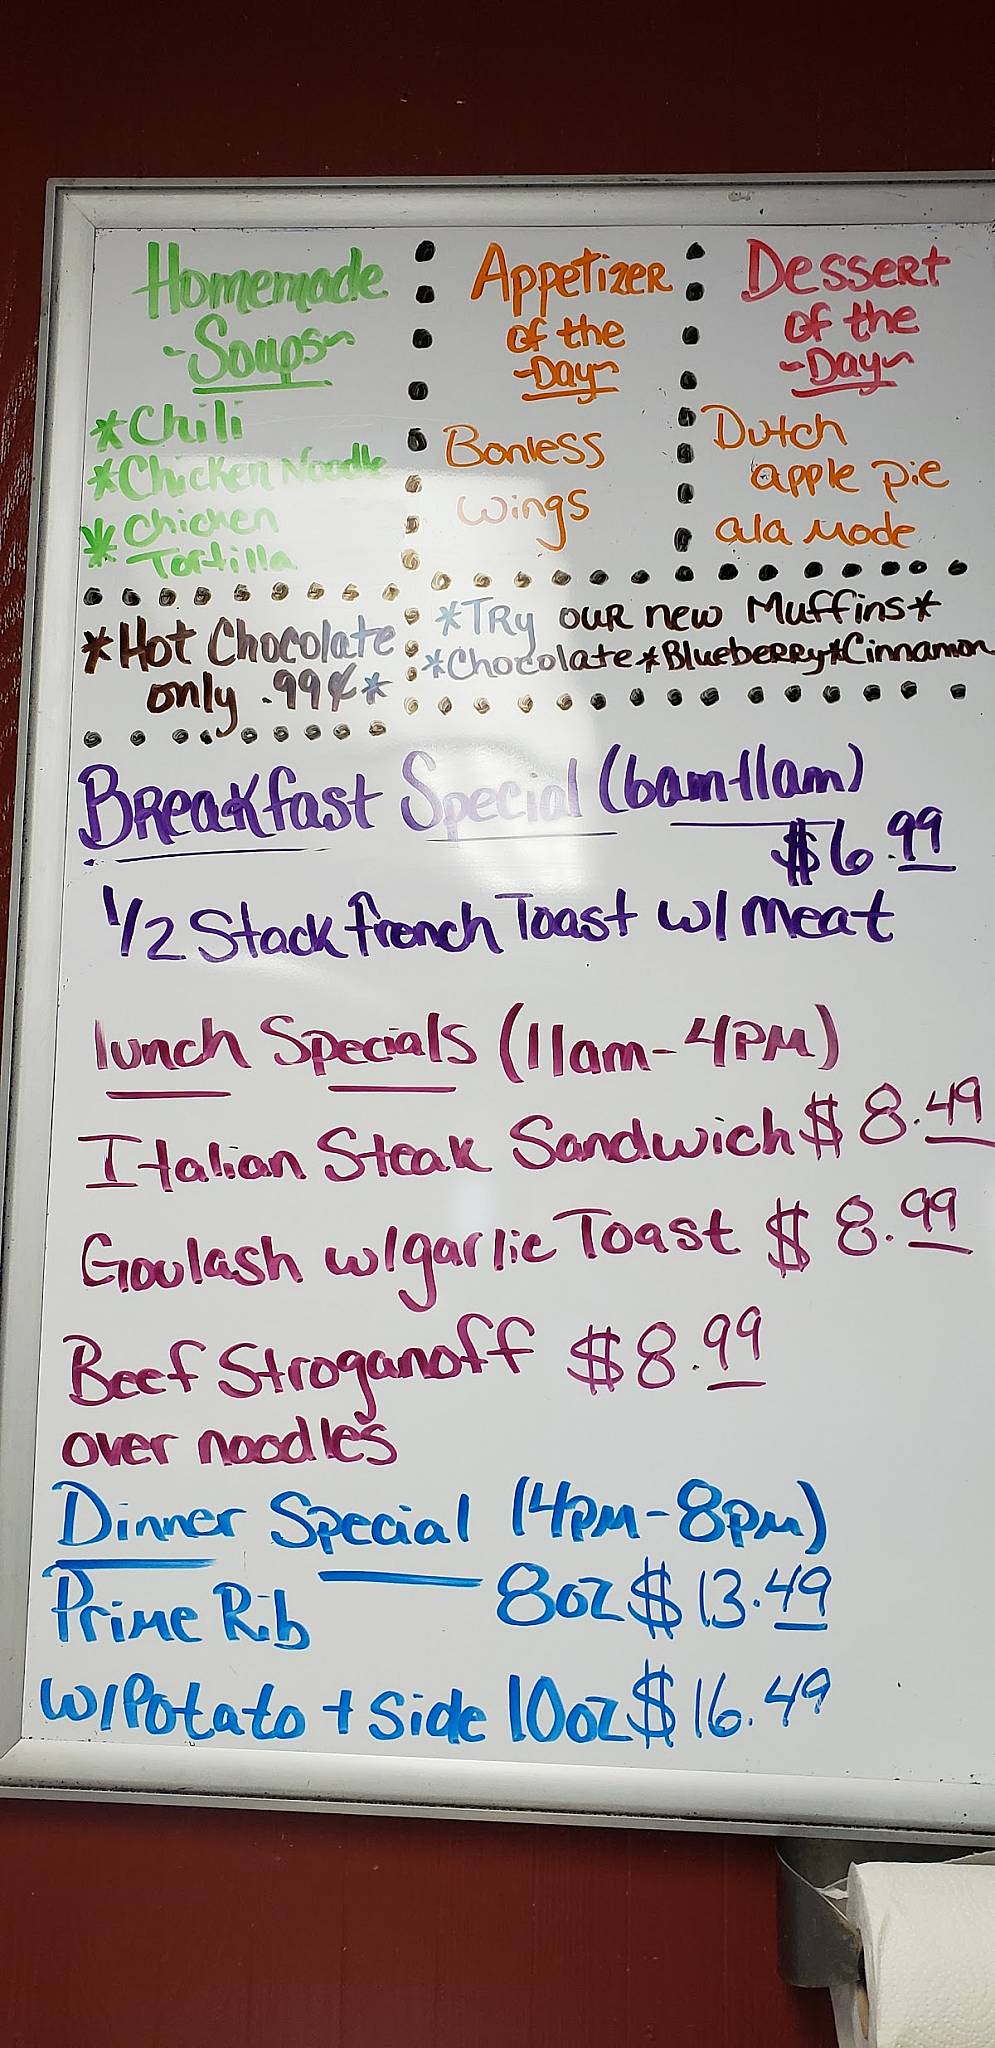 Homemade
~Soups~
*Chili
*Chicken Noodle
*Chicken
Tortilla
Appetizer
of the
~Day~
Bonless
wings
Dessert
of the
~Day~
Dutch
apple pie
ala Mode
*Hot Chocolate
only .99¢*
*TRy our new Muffins*
*Chocolate*Blueberry*Cinnamon
Breakfast Special (6am-11am)
$6.99
1/2 Stack french Toast w/ meat
lunch Specials (11am-4PM)
Italian Steak Sandwich $8.49
Goulash w/garlic Toast $8.99
Beef Stroganoff $8.99
over noodles
Dinner Special (4PM-8PM)
Prime Rib 8oz $13.49
w/Potato + side 10oz $16.49